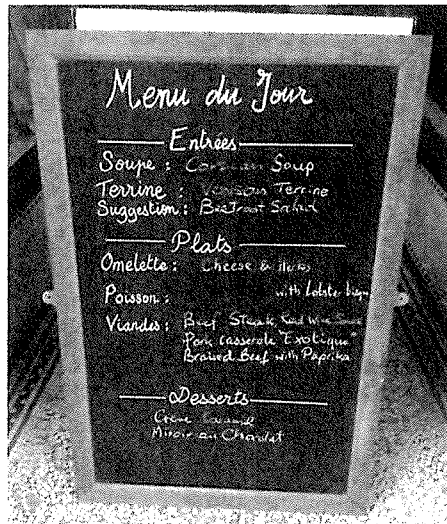 Menu du Jour
Entrées
Soupe : Soup
Terrine : Terrine
Suggestion : Beetroot Salad
Plats
Omelette : Cheese &
Poisson : with Lobster
Viandes : Beef Steak, Red Wine Sauce
Pork casserole "Exotique"
Braised Beef with Paprika
Desserts
Crème Caramel
Miroir au Chocolat